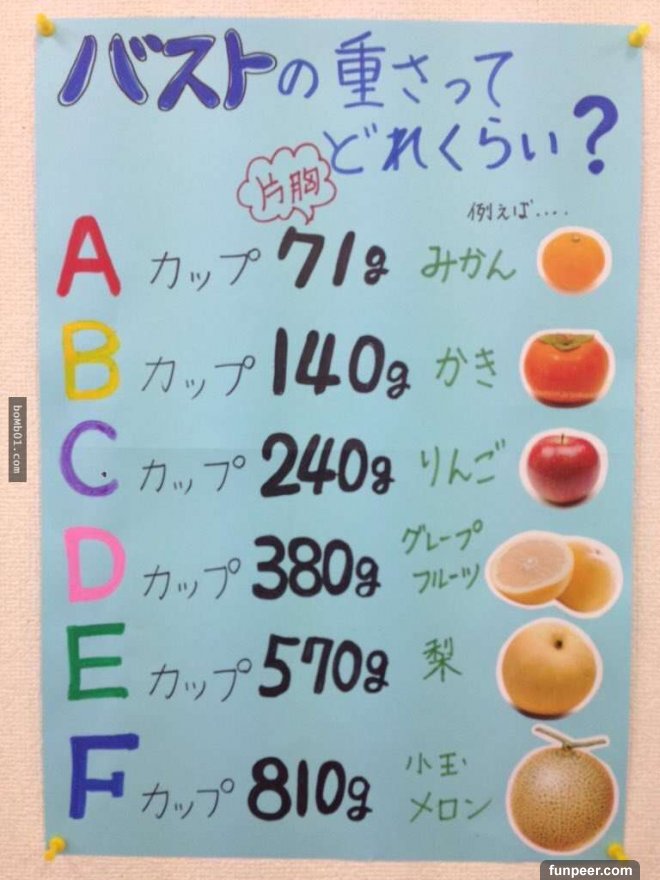 バストの重さって
どれくらい?
片胸
例えば....
A カップ 71g みかん
B カップ 140g かき
C カップ 240g りんご
D カップ 380g グレープ
フルーツ
E カップ 570g 梨
F カップ 810g 小玉
メロン
boMb01.com
funpeer.com